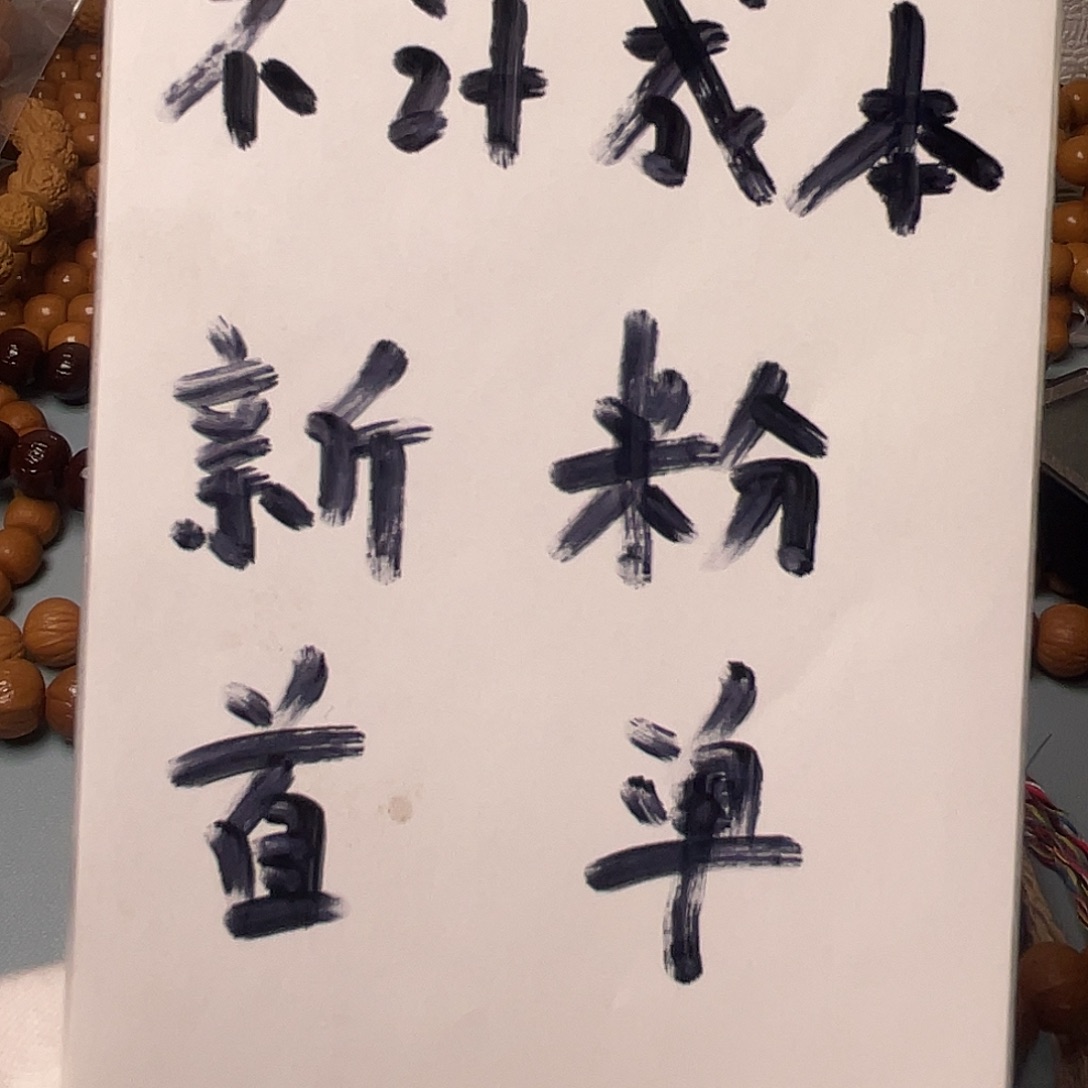 不计成本
新粉
首单